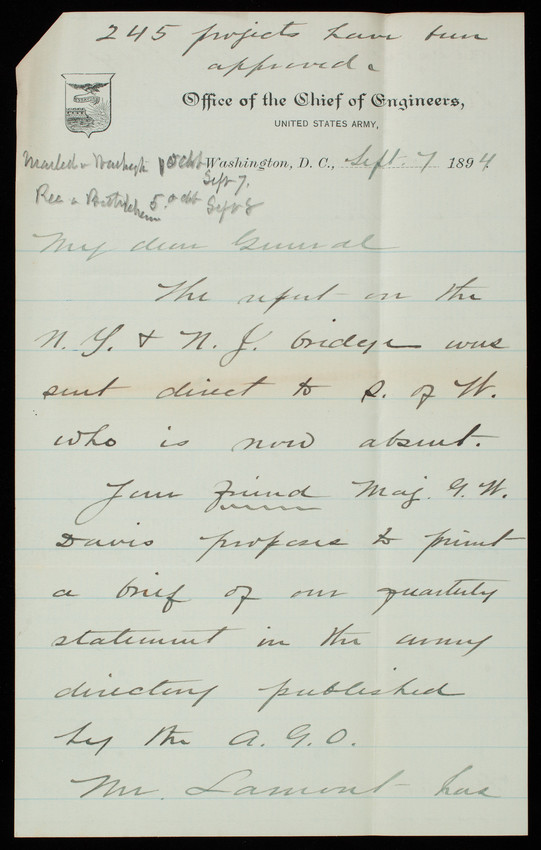 245 projects have been
approved.
Office of the Chief of Engineers,
UNITED STATES ARMY,
Washington, D. C., Sept. 7 1894.
Mailed Sept 7.
Rec 5. Sept 8
My dear General
The report on the
N. Y. & N. J. bridge was
sent direct to S. of W.
who is now absent.
Your friend Maj. G. W.
Davis proposes to print
a brief of our quarterly
statement in the army
directory published
by the A. G. O.
Mr. Lamont has